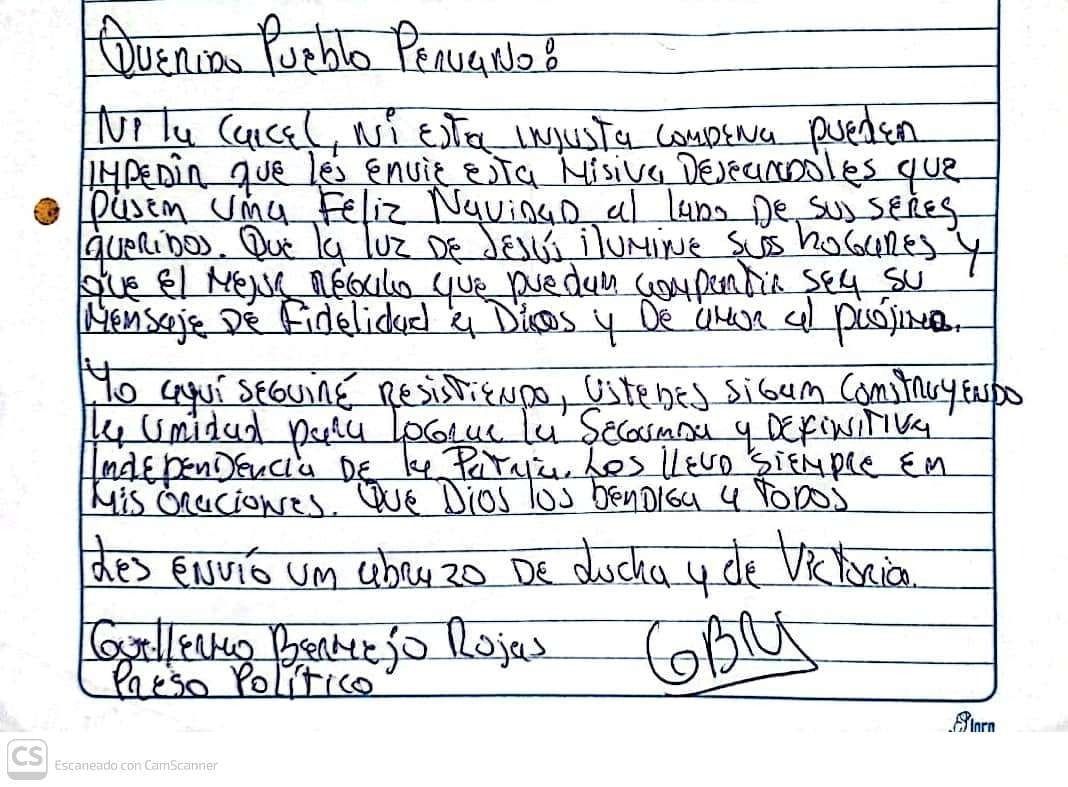 Querido Pueblo Peruano:
Ni la Carcel, Ni esta injusta condena pueden
impedir que les envie esta Misiva Deseandoles que
pasen una Feliz Navidad al lado De sus seres
queridos. Que la luz De Jesús ilumine sus hogares y
que el Mejor regalo que puedan compartir sea su
Mensaje De Fidelidad a Dios y De amor al prójimo.
Yo aquí seguiré Resistiendo, Ustedes sigan Construyendo
la unidad para lograr la Segunda y Definitiva
Independencia De la Patria. Los llevo siempre en
Mis oraciones. Que Dios los bendiga a todos
Les envío un abrazo De Lucha y de Victoria.
Guillermo Bermejo Rojas
Preso Político
GBR
CS Escaneado con CamScanner